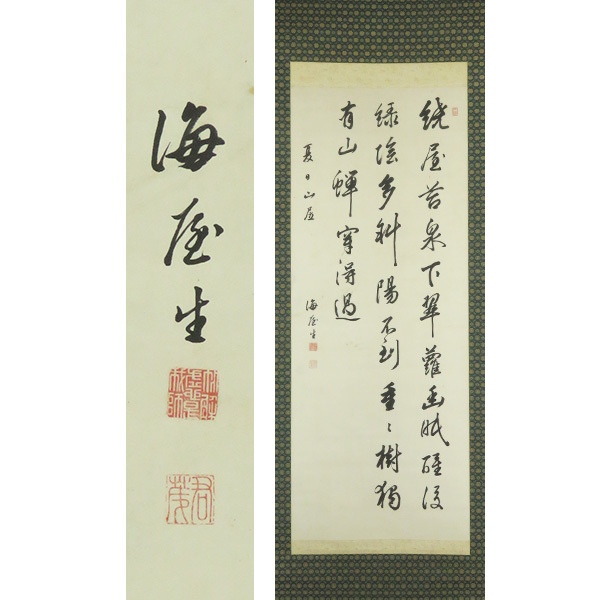 海屋生
君茂
繞屋苔泉下翠蘿幽眠醒後
綠陰多斜陽不到重〻樹獨
有山蟬穿得過
夏日山居
海屋生